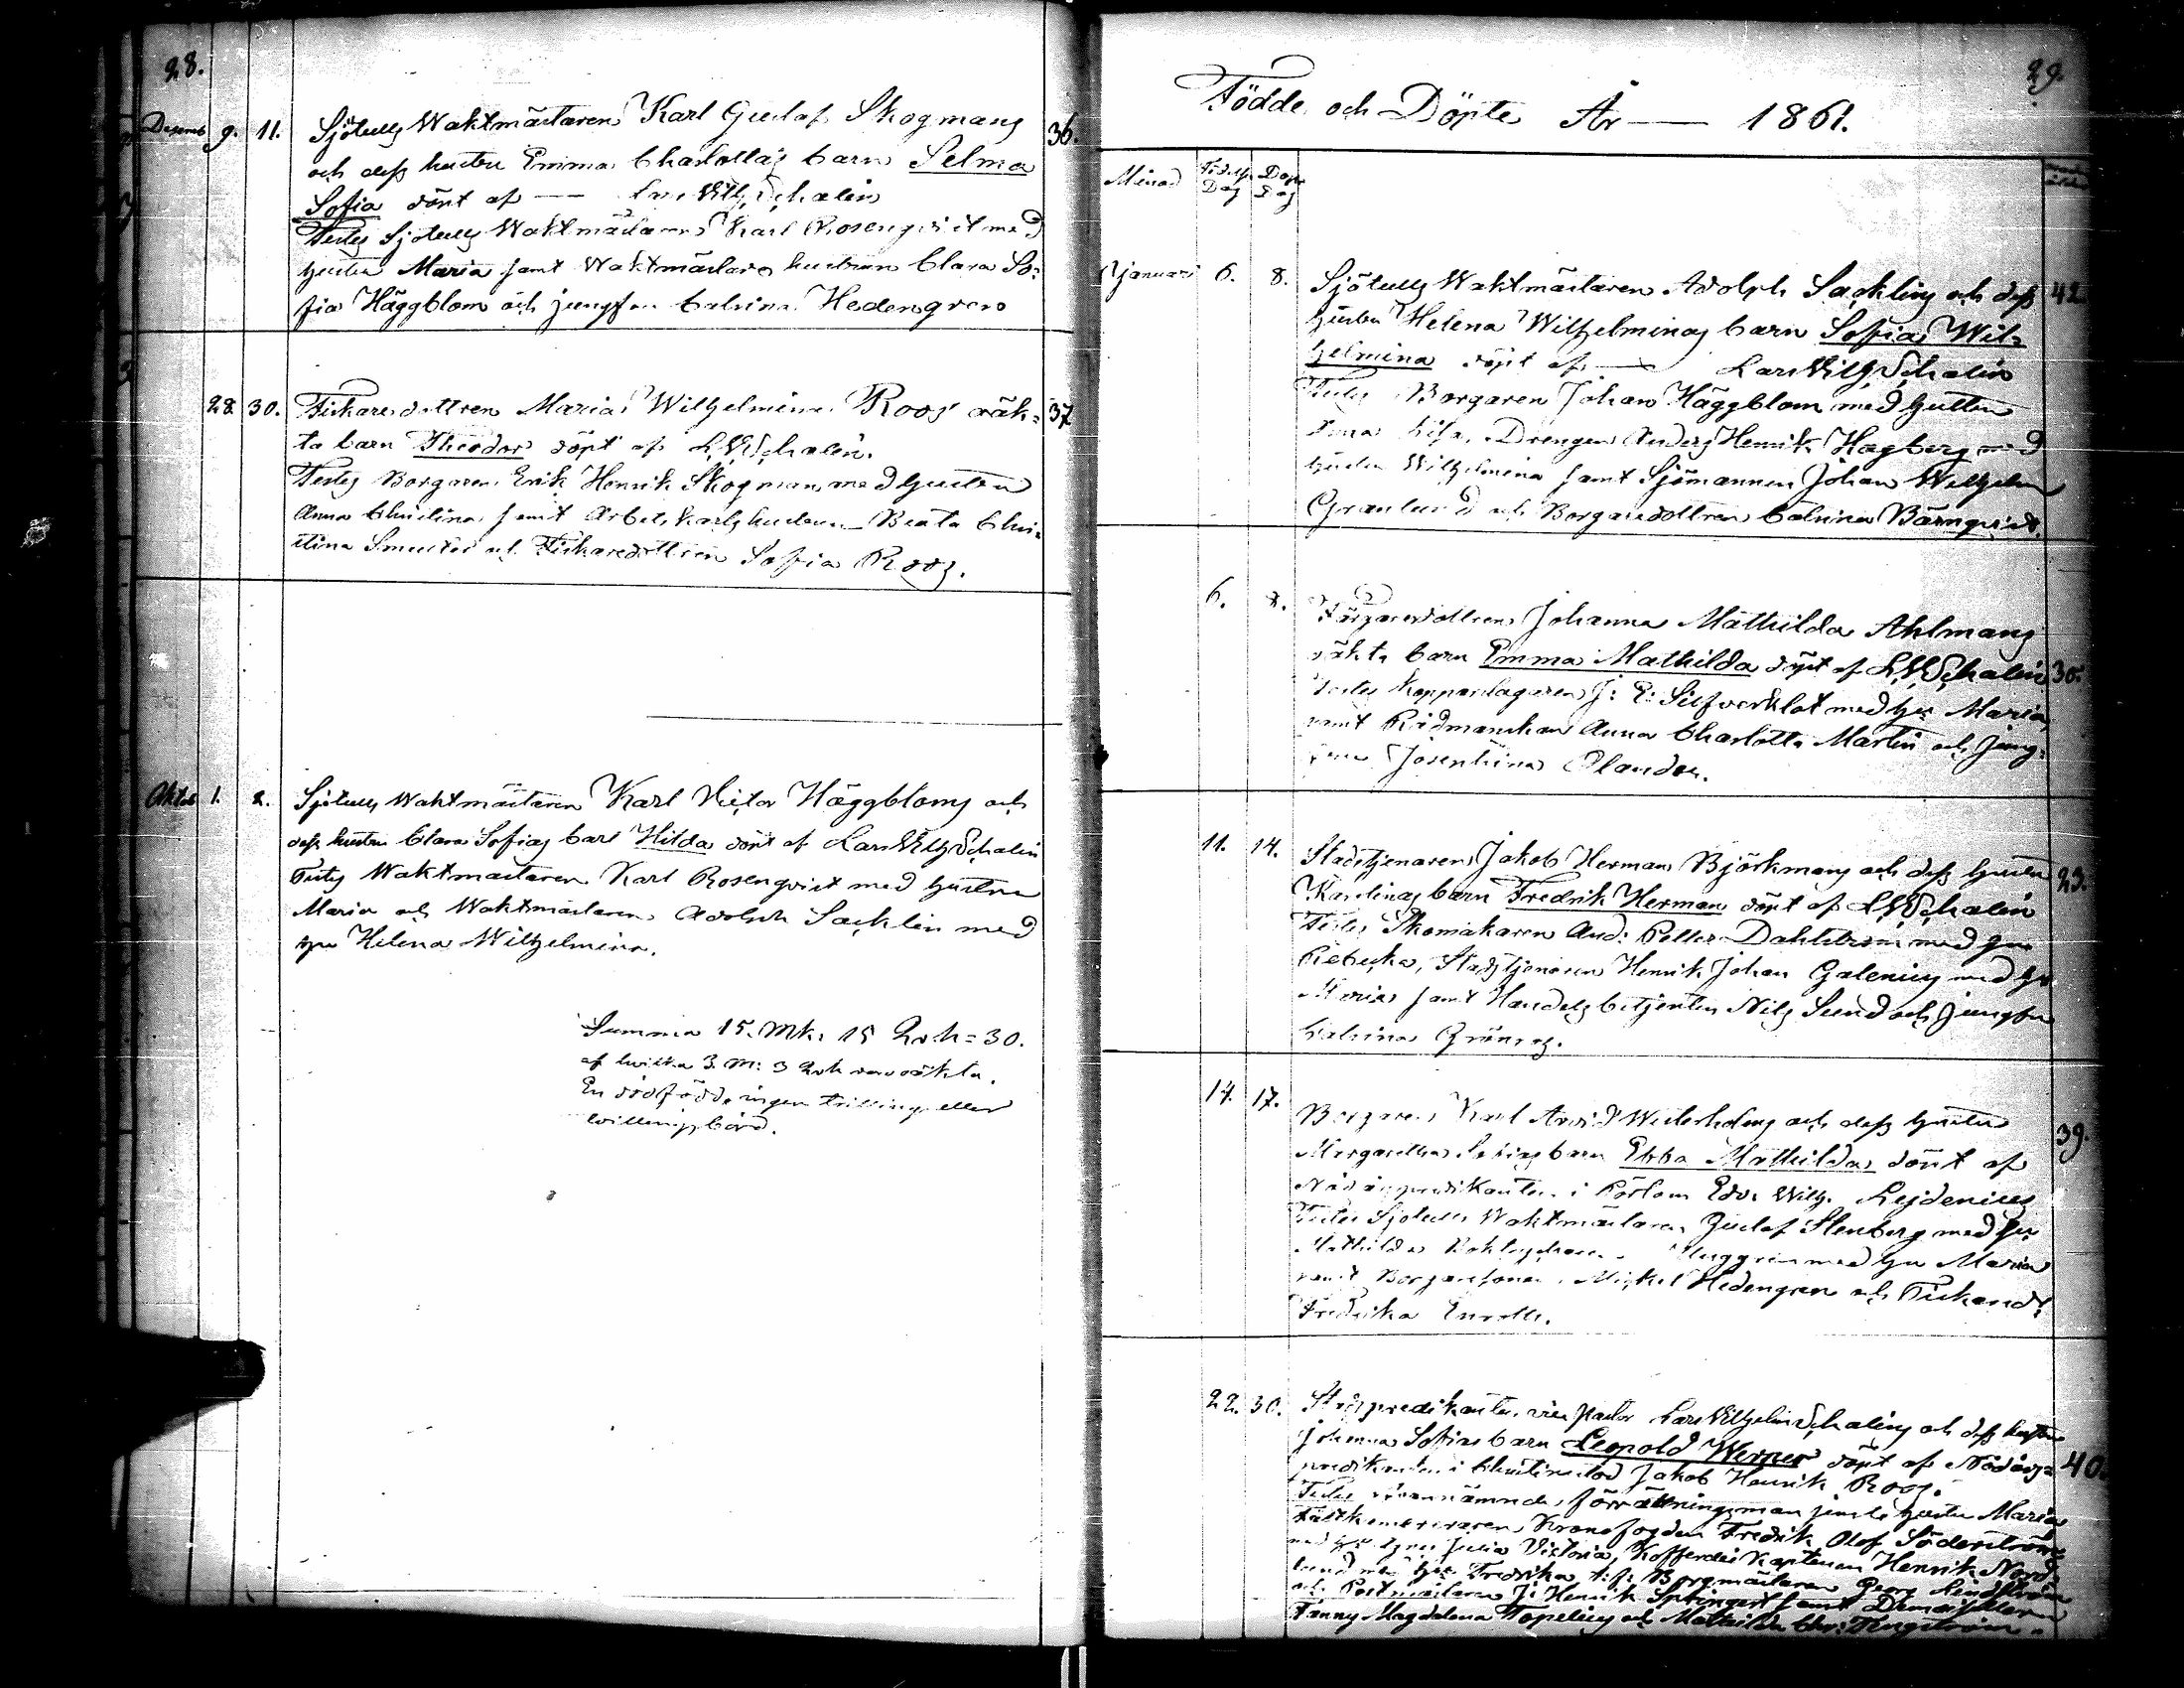 28.
Decemb 9. 11. Sjötulls Waktmästaren Karl Gustaf Skogmans 36.
och dess hustru Emma Charlottas barn Selma
Sofia döpt af — Lars Wilh. Schalin
Testes Sjötulls Waktmästaren Karl Rosenqvist med
hustru Maria samt Waktmästare hustrun Clara So=
fia Häggblom och jungfru Catrina Hedengren
28. 30. Fiskaredottren Maria Wilhelmina Roos oäk= 37
ta barn Theodor döpt af L. W. Schalin.
Testes Borgaren Erik Henrik Skogman med hustru
Anna Christina samt Arbetskarls hustrun Beata Chri=
stina och Fiskaredottren Sofia Roos.
Oktob 1. 2. Sjötulls Waktmästaren Karl Victor Häggbloms och
dess hustru Clara Sofias barn Hilda döpt af Lars Wilh. Schalin
Testes Waktmästaren Karl Rosenqvist med hustru
Maria och Waktmästaren Adolph Sacklin med
hu Helena Wilhelmina.
Summa 15. Mk. 15 Qvk = 30.
af hwilka 3. M: 3 Qvk oäkta.
En dödfödd, ingen trilling eller
twillingsbörd.
29.
Födde och Döpte År — 1861.
Månad Födelse Dag Dope Dag
Januari 6. 8. Sjötulls Waktmästaren Adolph Sacklins och dess 42
hustru Helena Wilhelminas barn Sofia Wil=
helmina döpt af — Lars Wilh. Schalin
Testes Borgaren Johan Häggblom med hustru
Drengen Anders Henrik Hagberg med
hustru Wilhelmina samt Sjömannen Johan Wilhelm
Granlund och Borgaredottren Catrina Bärnqvist.
6. 8. Johanna Mathilda Ahlmans
oäkta barn Emma Mathilda döpt af L. W. Schalin 30.
Testes Kopparslagaren J: E: Silfverklot med hu Maria,
samt Rådmanskan Anna Charlotta Martin och Jung=
frun Josephina Elander.
11. 14. Stadstjenaren Jakob Herman Björkmans och dess hustru 23.
Karolinas barn Fredrik Herman döpt af L. W. Schalin
Testes Skomakaren And: Petter Dahlström med hu
Rebecka, Stadstjenaren Henrik Johan Galenius med hu
Maria samt Handelsbetjenten Nils Sund och Jungfru
Catrina
14. 17. Borgaren Karl Arvid Westerholms och dess hustru 39.
Margaretha barn Ebba Mathilda döpt af
Nådårspredikanten i Pörtom Edv. Wilh. Lejdenius
Testes Sjötulls Waktmästaren Gustaf Stenberg med hu
Mathilda med hu Maria
samt Borgaresonen Mickel Hedengren och Fiskared:
Fredrika
22. 30. Stadspredikanten, vice Pastor Lars Wilhelm Schalins och dess hustru
Johanna Sofias barn Leopold Werner döpt af Nådårs= 40.
predikanten i Christinestad Jakob Henrik Roos.
Testes ofvannämnde förrättningsman jemte hustru Maria
Kronofogden Fredrik Olof Söderström
med Julia Victoria, Kofferdie Kaptenen Henrik Nord=
lund med hu Fredrika, t.f. Borgmästaren Georg Lindström
och Postmästaren J: Henrik Springert samt Demoisellerna
Fanny Magdalena Topelius och Mathilda Chr: Tengström.